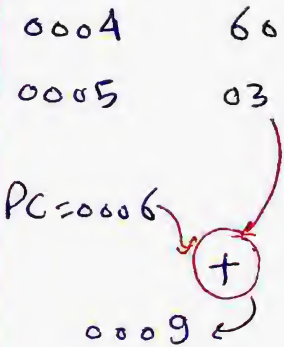 0004 60
0005 03
PC=0006
+
0009